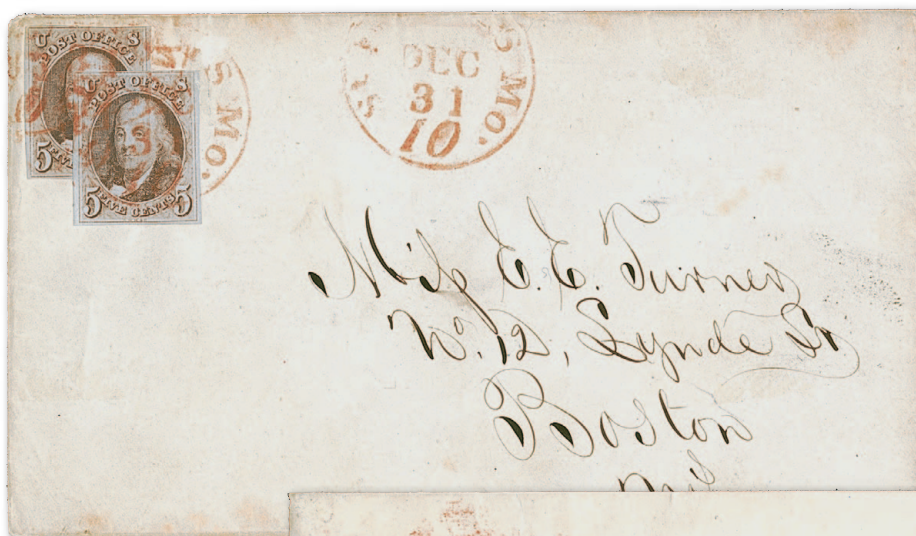 U S
POST OFFICE
5 FIVE
U S
POST OFFICE
5 FIVE CENTS 5
S MO.
ST S MO.
DEC
31
10
Miſs E. E. Turner
No. 12, Lynde St.
Boston